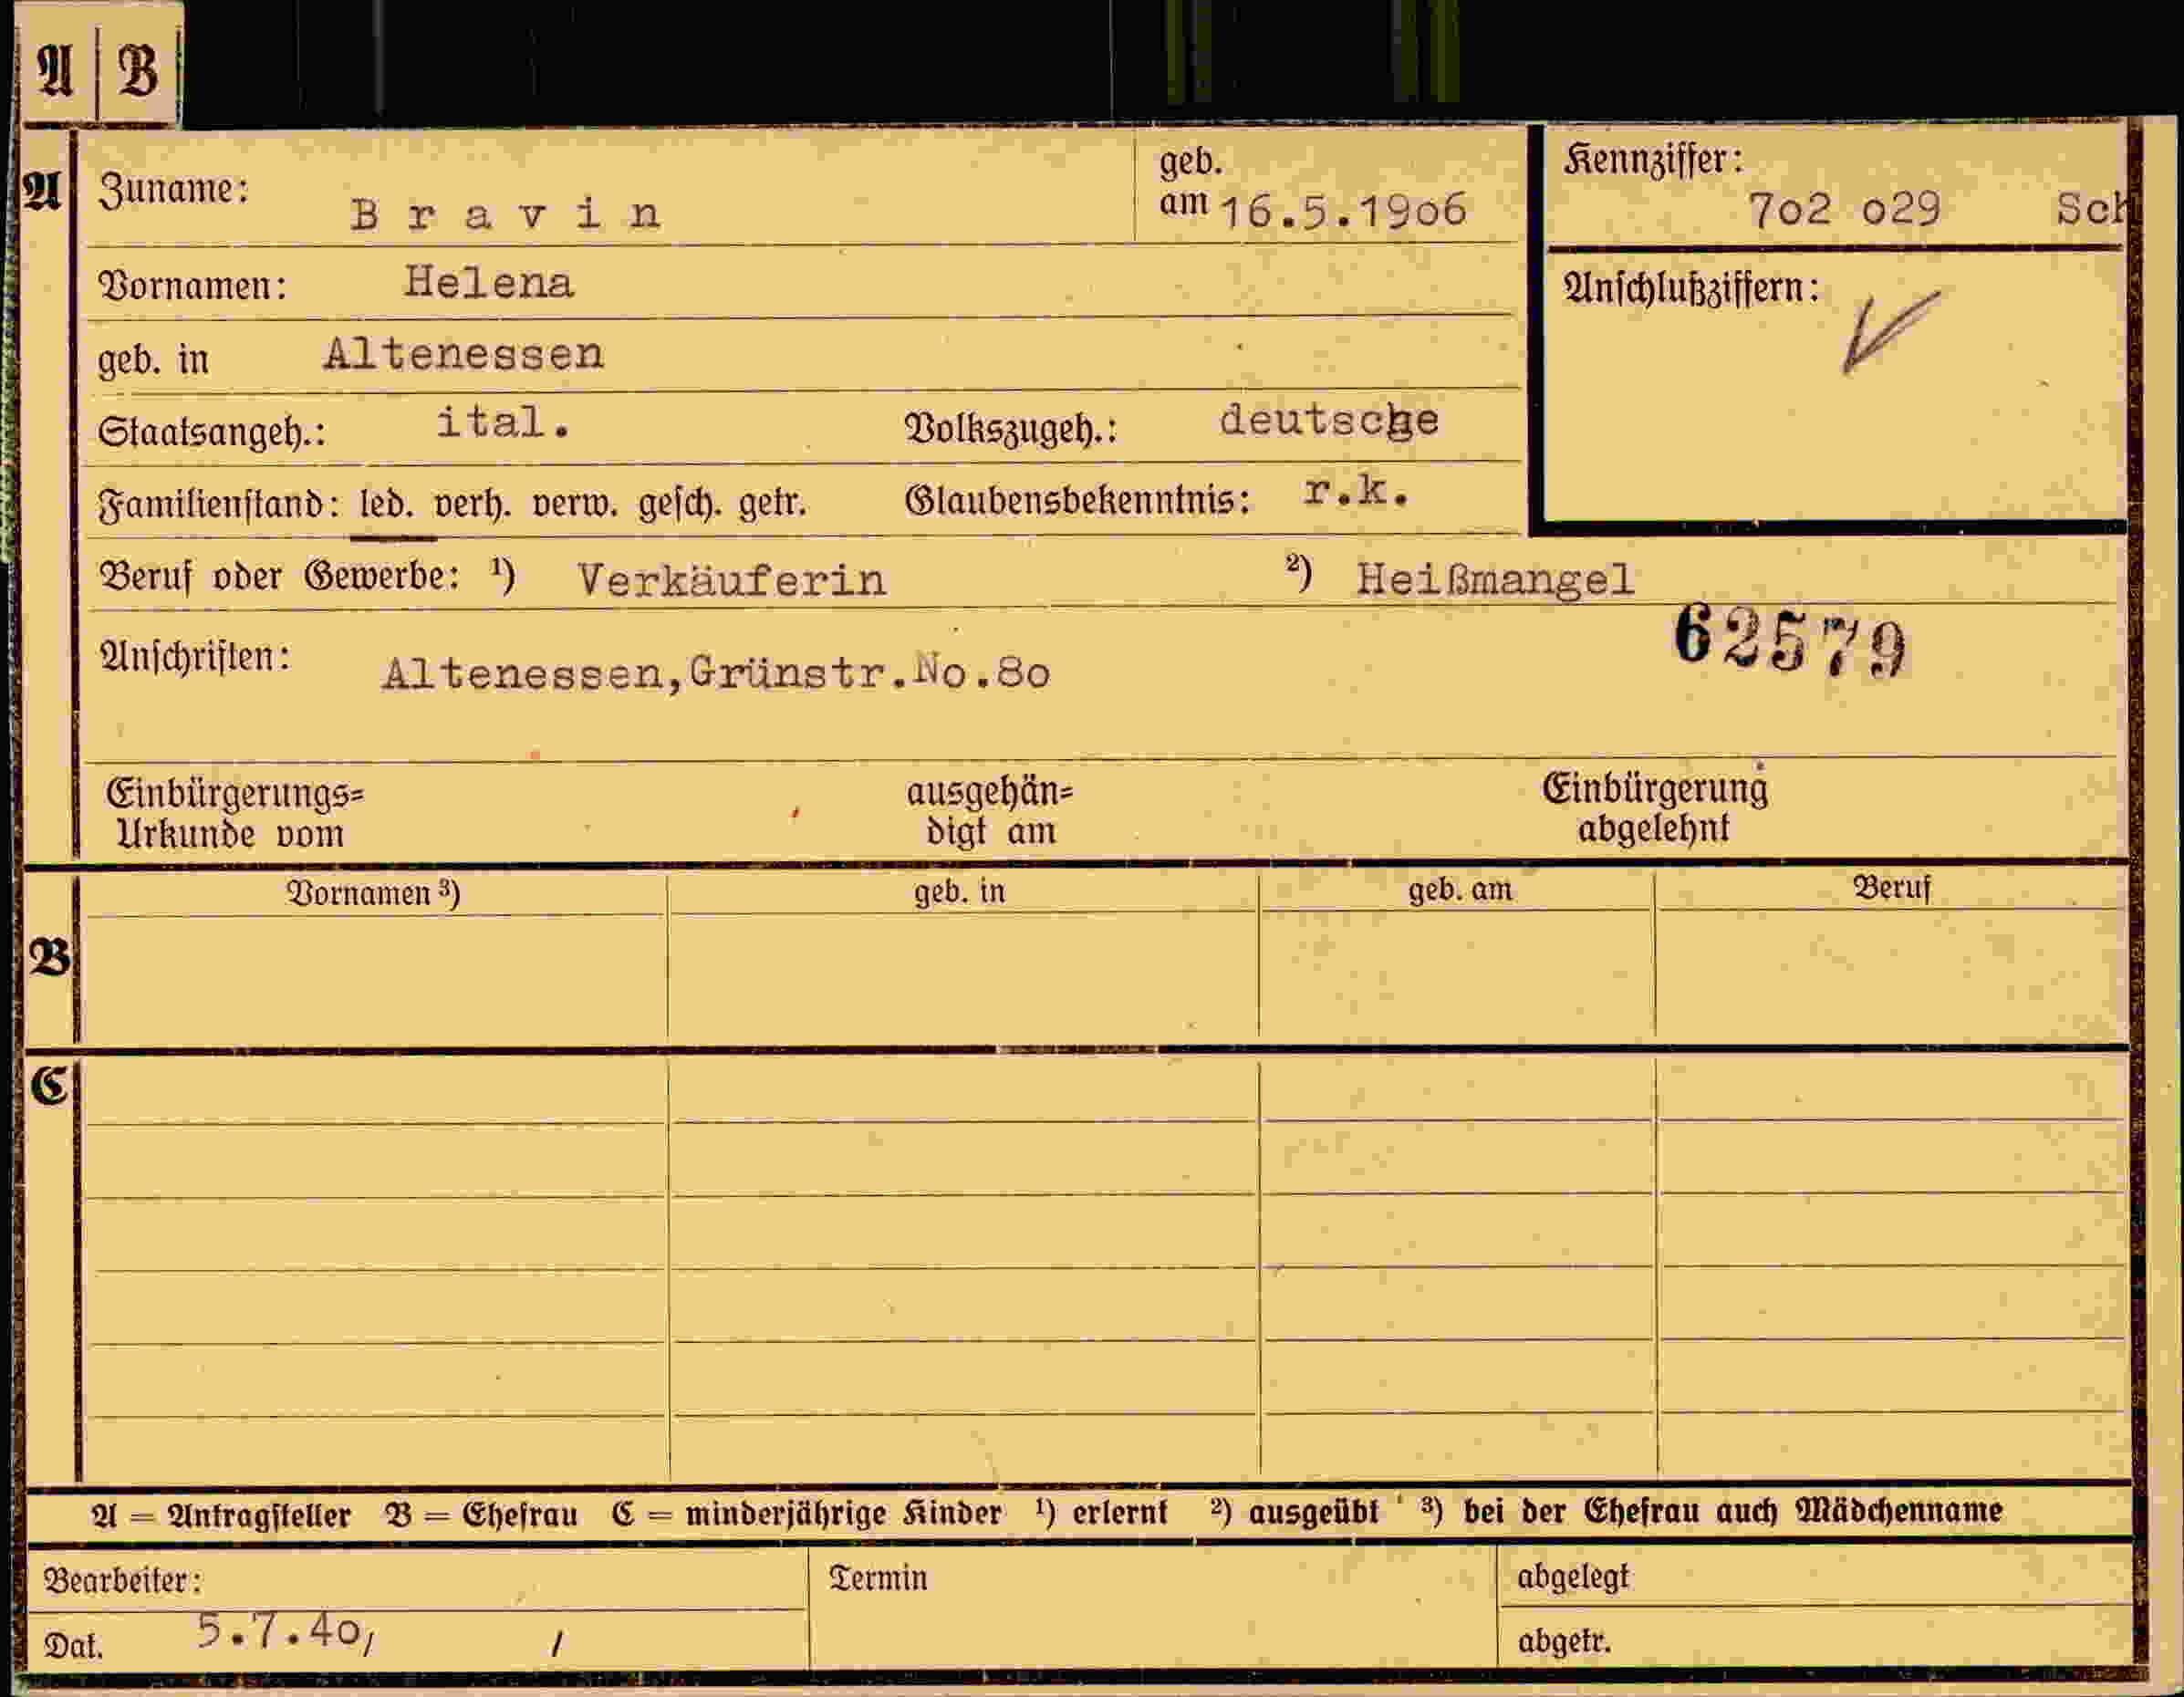 A | B
A Zuname: Bravin geb. am 16.5.1906 Kennziffer: 702 029 Sch
Vornamen: Helena Anschlußziffern:
geb. in Altenessen
Staatsangeh.: ital. Volkszugeh.: deutsche
Familienstand: led. verh. verw. gesch. getr. Glaubensbekenntnis: r.k.
Beruf oder Gewerbe: ¹) Verkäuferin ²) Heißmangel
62579
Anschriften: Altenessen,Grünstr.No.80
Einbürgerungs= ausgehän= Einbürgerung
Urkunde vom digt am abgelehnt
Vornamen ³) geb. in geb. am Beruf
B
C
A = Antragsteller B = Ehefrau C = minderjährige Kinder ¹) erlernt ²) ausgeübt ³) bei der Ehefrau auch Mädchenname
Bearbeiter: Termin abgelegt
Dat. 5.7.40/ / abgetr.